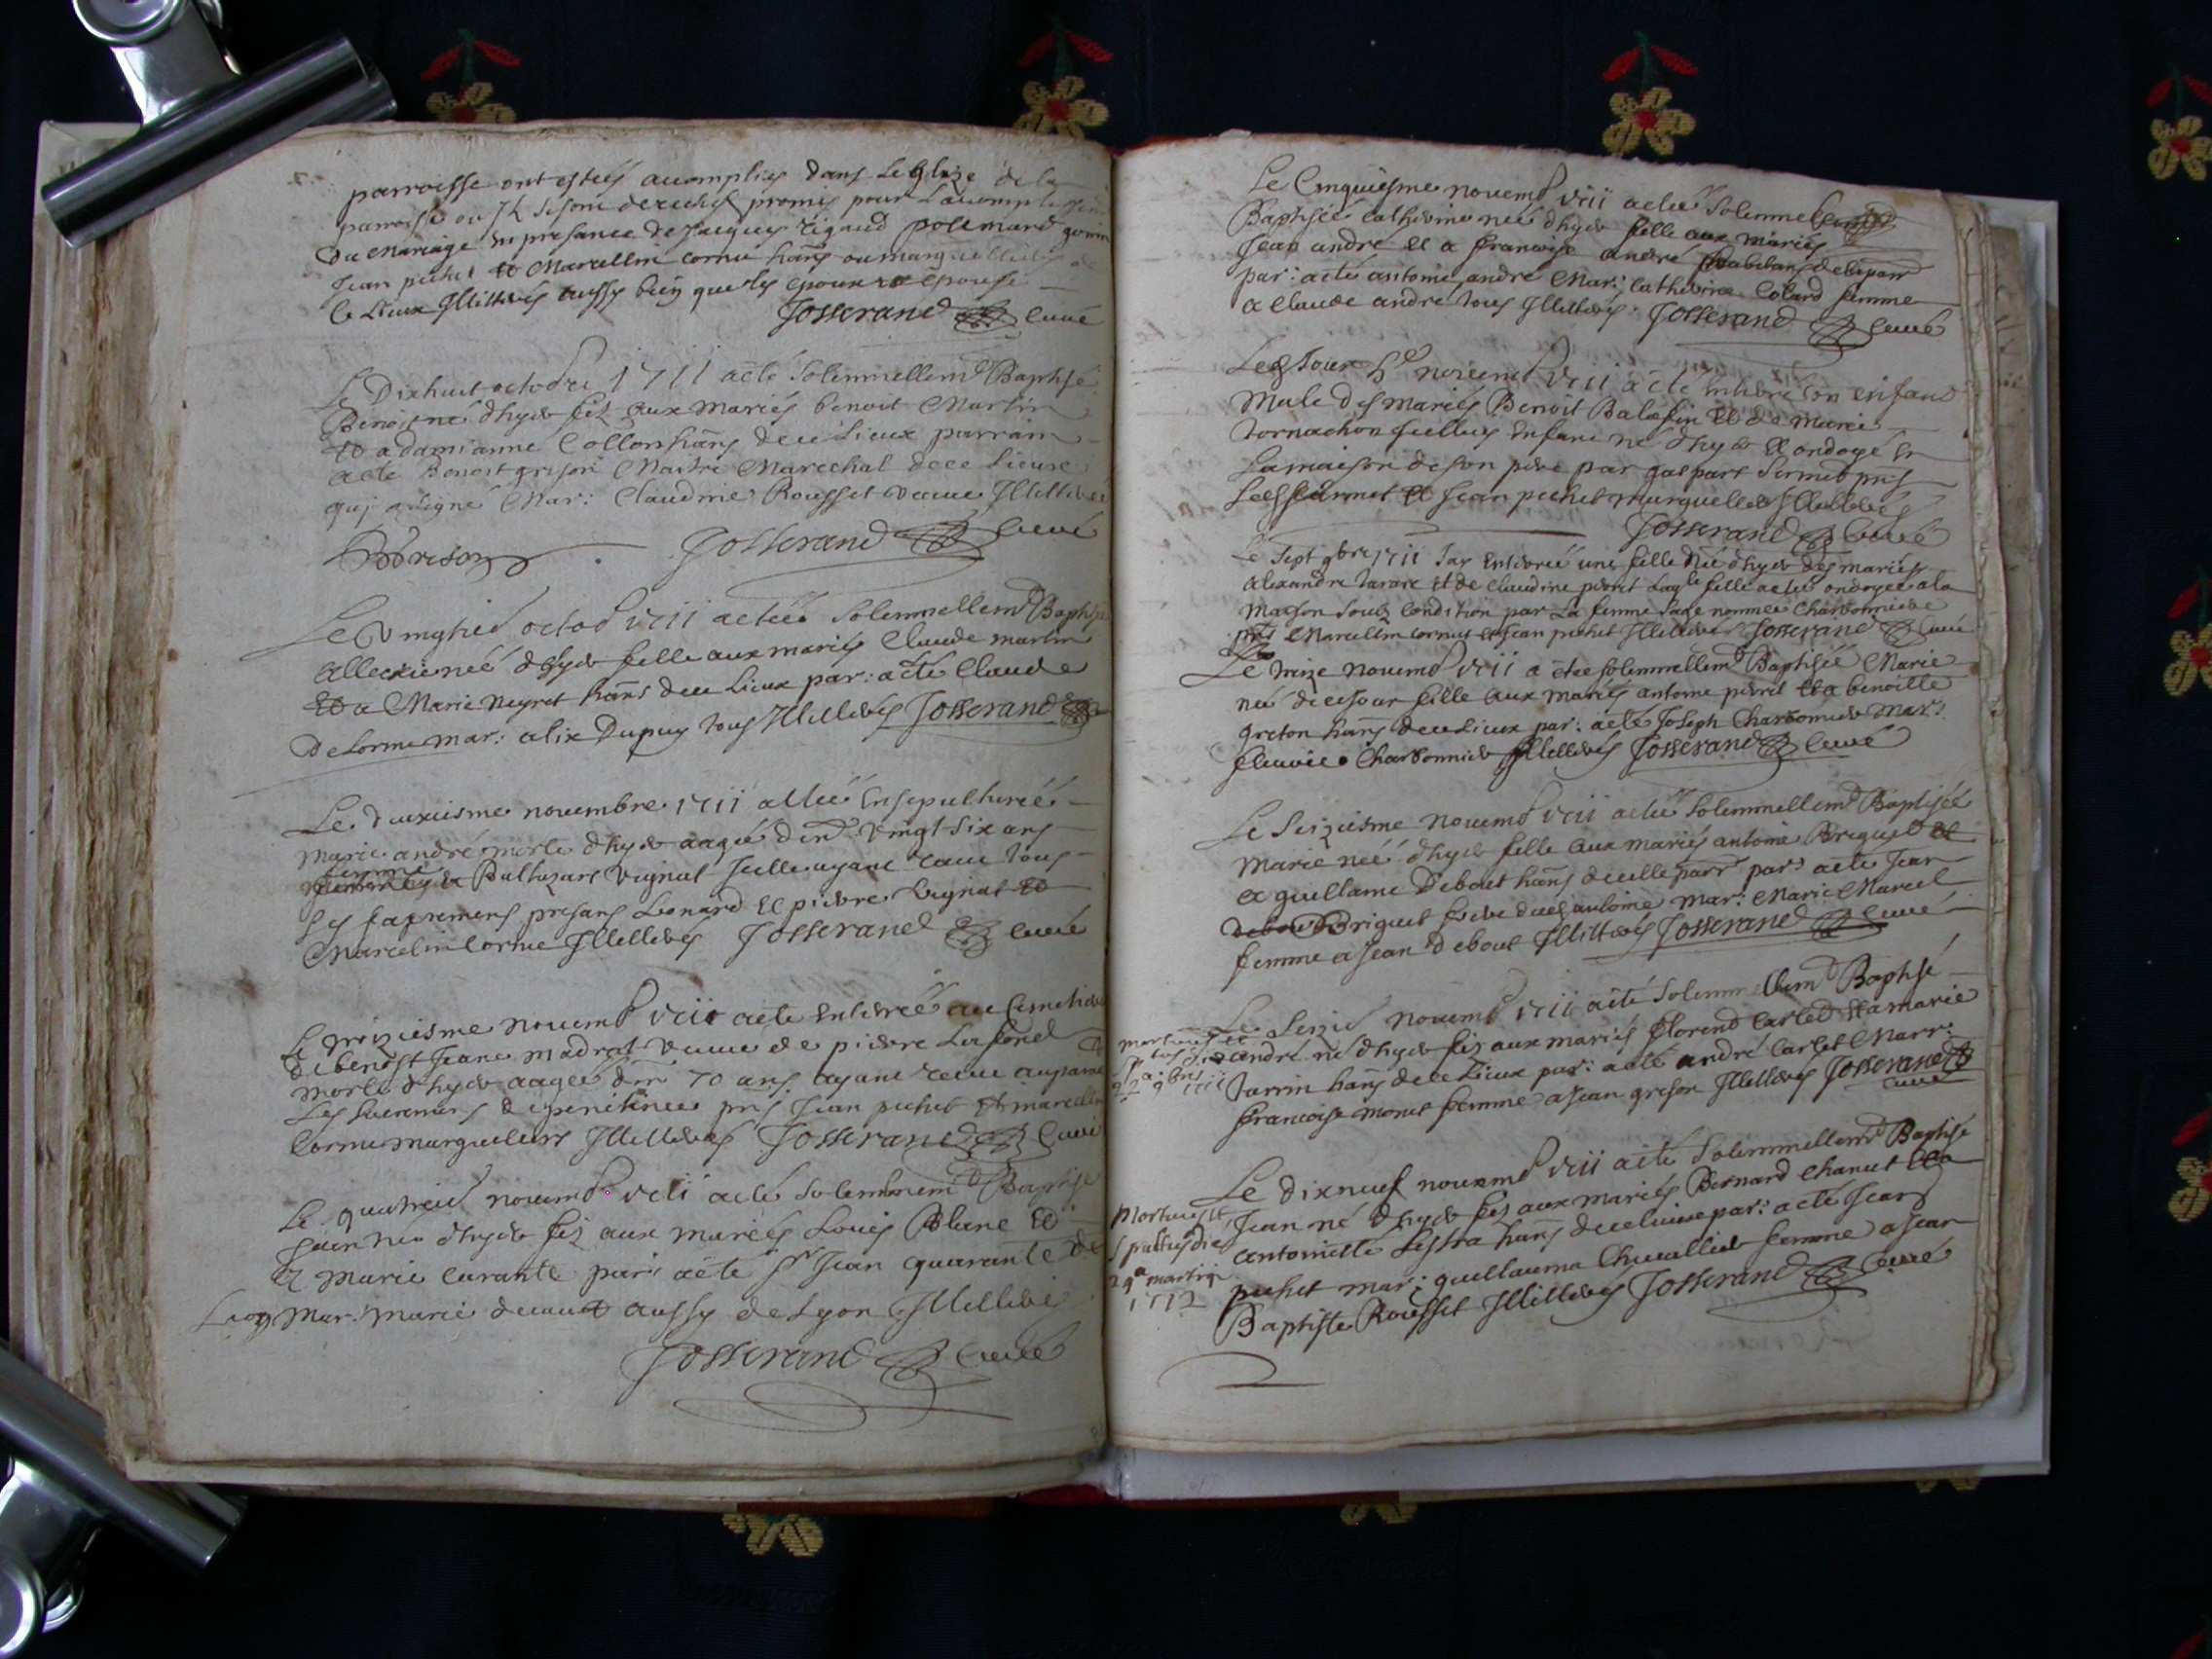 parroisse ont estés acomplies dans Leglize de la
parroisse ou Jl se sont promis pour Lacomplissem
Du Mariage en presance de Jacques rigaud
Jean pichet et Marcellin cornu hans ou marguelliers de
ce Lieux Jllitterés aussy bien que les epoux et epouse
Josserand curé
Le Dixhuit octobre 1711 a eté Solennellemt Baptisé
Benoit né dhyer fiz aux Mariés benoit Martin
et a damianne Collon hans de ce Lieux parrain
a eté Benoit grison Maitre Marechal de ce Lieux
quj a signé Mar: Claudine Rousset veuue Jllitterée
BGrison Josserand curé
Le vingtiè octob 1711 a etéé Solennellemt Baptisé
née dhyer fille aux mariés Claude martin
et a Marie neyret hans de ce Lieux par: a eté Claude
Delorme mar: alix Dupuy tous Jllitterés Josserand
Le deuxiesme novembre 1711 a etéé Ensepulturéé
Marie andré morte dhyer aagée denv vingt six ans
femme de Balthazart vignat Jcelle ayant receu tous
Ses sacremens presans Leonard et pierre vignat et
Marcelin Cornu Jllitterés Josserand curé
Le troiziesme novemb 1711 a eté Enterréé au Cimetiere
de benoist Jeane madrat veuue de pierre Lafond
morte dhyer aagéé denv 70 ans ayant receue auparavt
Les sacremens de penitence prs Jean pichet et marcellin
Cornu marguelliers Jllitterés Josserand Curé
Le quatreiè novemb 1711 a eté Solennelemt Baptisé
Jean né dhyer fiz aux mariés Louis Blanc et
a Marie Carante par: a eté sr Jean quarante de
Lion Mar: Marie aussy de Lyon Jllitterés
Josserand Curé
Le Cinquiesme novemb 1711 a etée Solennelemt
Baptiséé Catherine néé dhyer fille aux mariés
Jean andré et a francoise andré habitans de la parr
par: a eté antoine andré Mar: Catherine Colard femme
a Claude andré tous Jllitterés Josserand curé
Led Jour 5e novemb 1711 a eté Enterré un enfant
Male des mariés Benoit Balefin et de Marie
tornachon Jcelluy Enfant né dhyer et ondoyé En
La maison de son pere par gaspart Sermet prs
Led Sermet et Jean pichet marguellier Jllitterés
Josserand Curé
Le sept 9bre 1711 Jay Enterréé une fille née dhyer des mariés
alexandre tarare et de Claudine pivret Laqle fille a etée ondoyée a la
Maison soubs condition par La femme sage nommée Charbonniere
prs Marcellin cornut et Jean pichet Jllitterés Josserand curé
Le treize novemb 1711 a etée solennellemt Baptiséé Marie
née de ce Jour fille aux mariés antoine pivret et a benoitte
greton hans de ce Lieux par: a eté Joseph Charbonnier Mar:
fleurie Charbonnier Jllitterés Josserand Curé
Le Seiziesme Novemb 1711 a etée Solennellemt Baptiséé
Marie néé dhyer fille aux mariés antoine Briquet et
a guillame Debout hans de cette parr par: a eté Jean
Briquet frere dud antoine mar: Marie Marcel
femme a Jean debout Jllitterés Josserand curé
Le Seiziè Novemb 1711 a eté Solennellemt Baptisé
andré né dhyer fiz aux mariés florend Carlet et a marie
tarrin hans de ce Lieux par: a eté andré Carlet Marr:
francoise monet femme a Jean grison Jllitterés Josserand
curé
mortuus est
22a 9bris
1711
Le dixneuf novemb 1711 a eté Solennellemt Baptisé
Jean né dhyer fiz aux mariés Bernard Chanut et a
antoinette Lestra hans de ce lieux par: a eté Jean
pichet mar: guillauma Chevallier femme a Jean
Baptiste Rousset Jllitterés Josserand Curé
Mortuus est
Spultus die
29a martii
1712